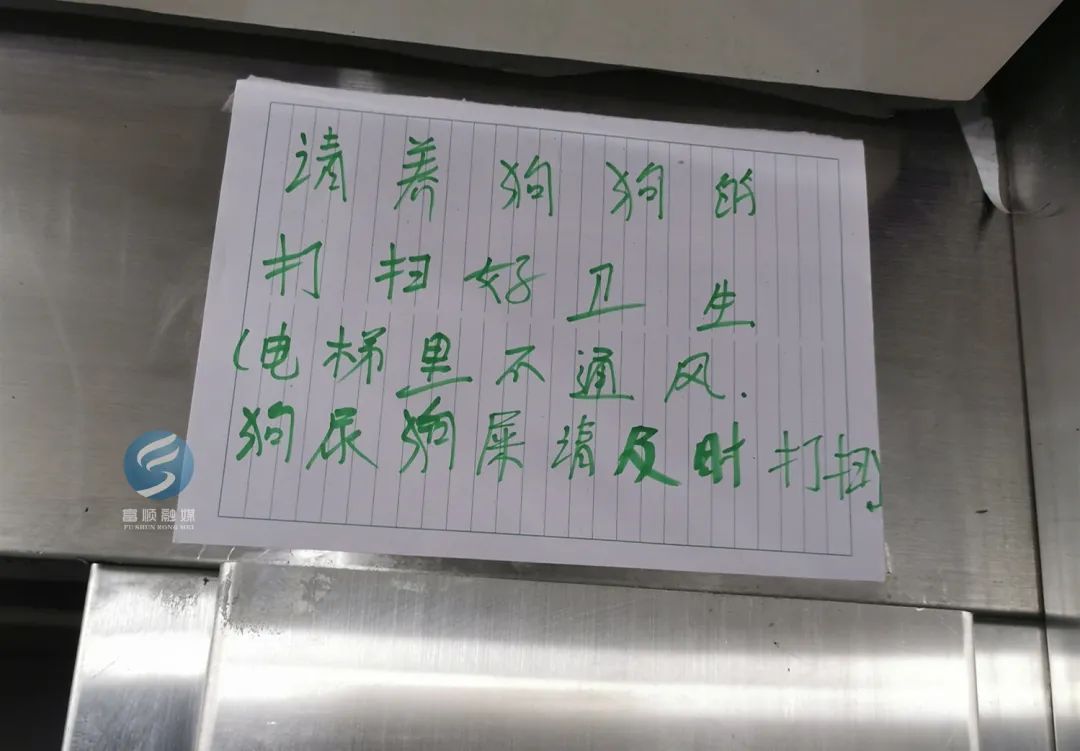 请养狗狗的
打扫好卫生
(电梯里不通风.
狗尿狗屎请及时打扫)
富顺融媒
FU SHUN RONG MEI